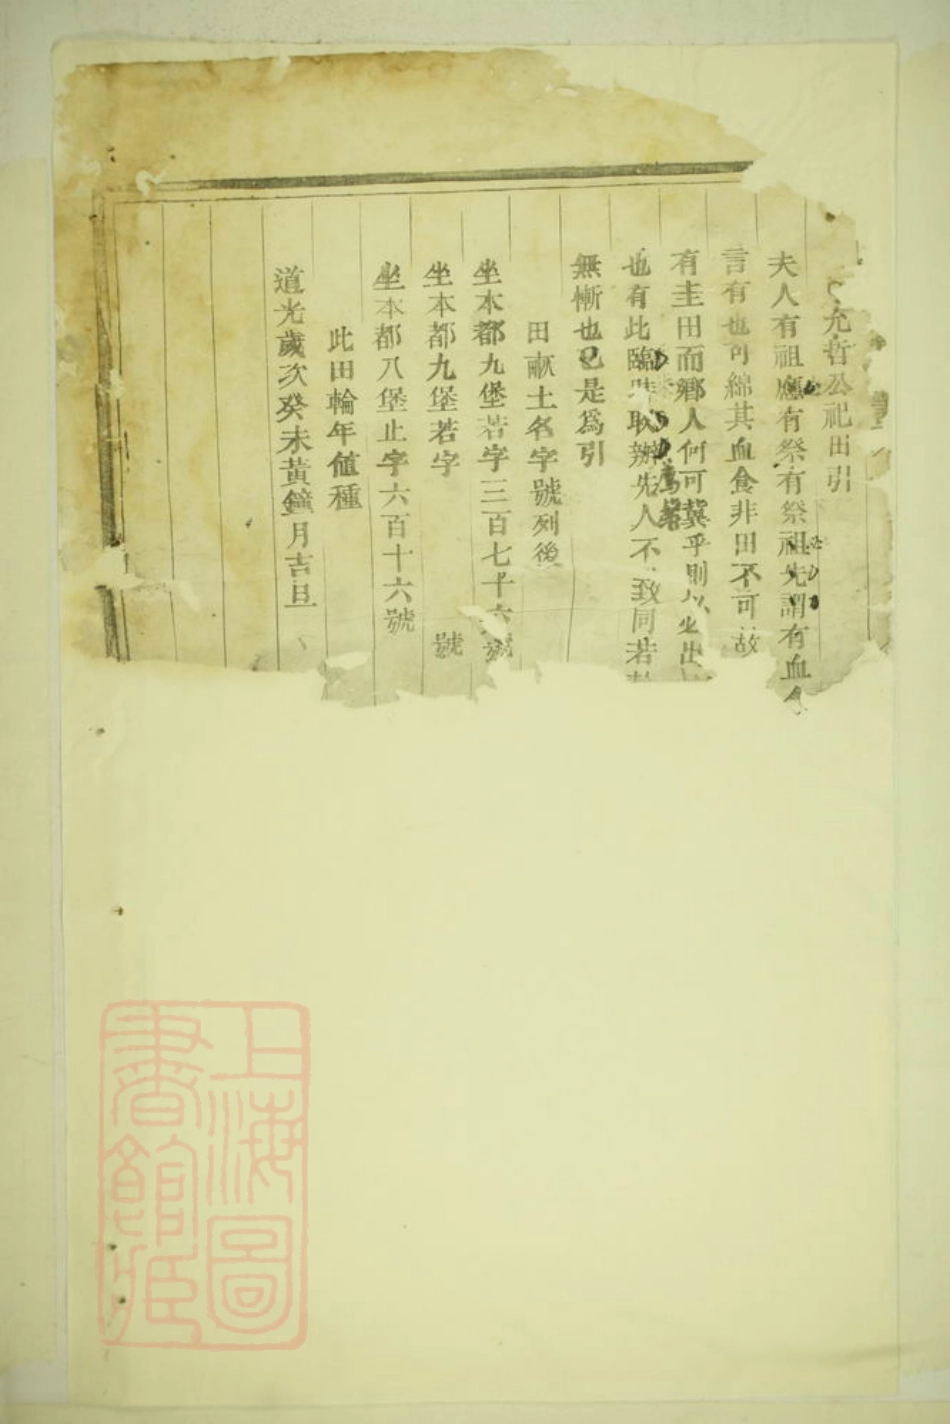 允哲公祀田引
夫人有祖應有祭有祭祖先謂有血
言有也可綿其血食非田不可故
有圭田而鄉人何可冀乎則以出
也有此臨時耿辦先人不致同若
無慚也已是為引
田畝土名字號列後
坐本都九堡若字三百七十六號
坐本都九堡若字 號
坐本都八堡止字六百十六號
此田輪年値種
道光歲次癸未黃鐘月吉旦
上海圖書館藏